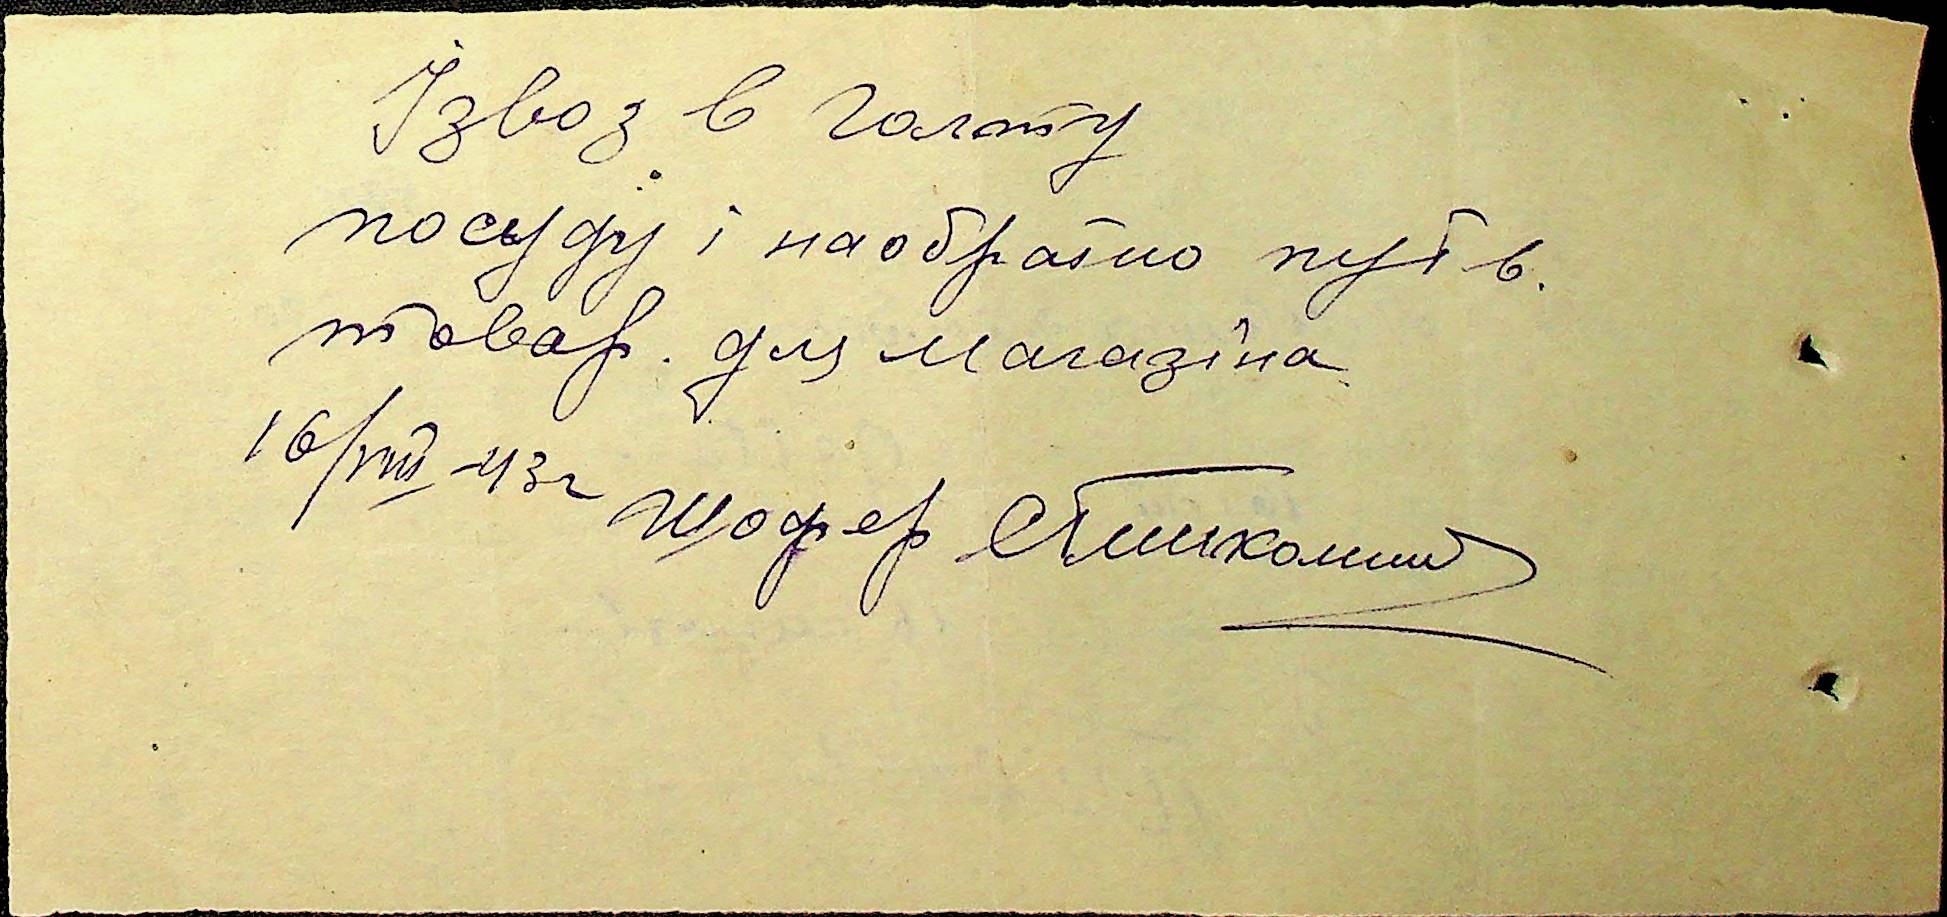 Ізвоз в Голту
посуду і наобратно путь в.
товар. для магазіна
16/VIII-43г Шофер